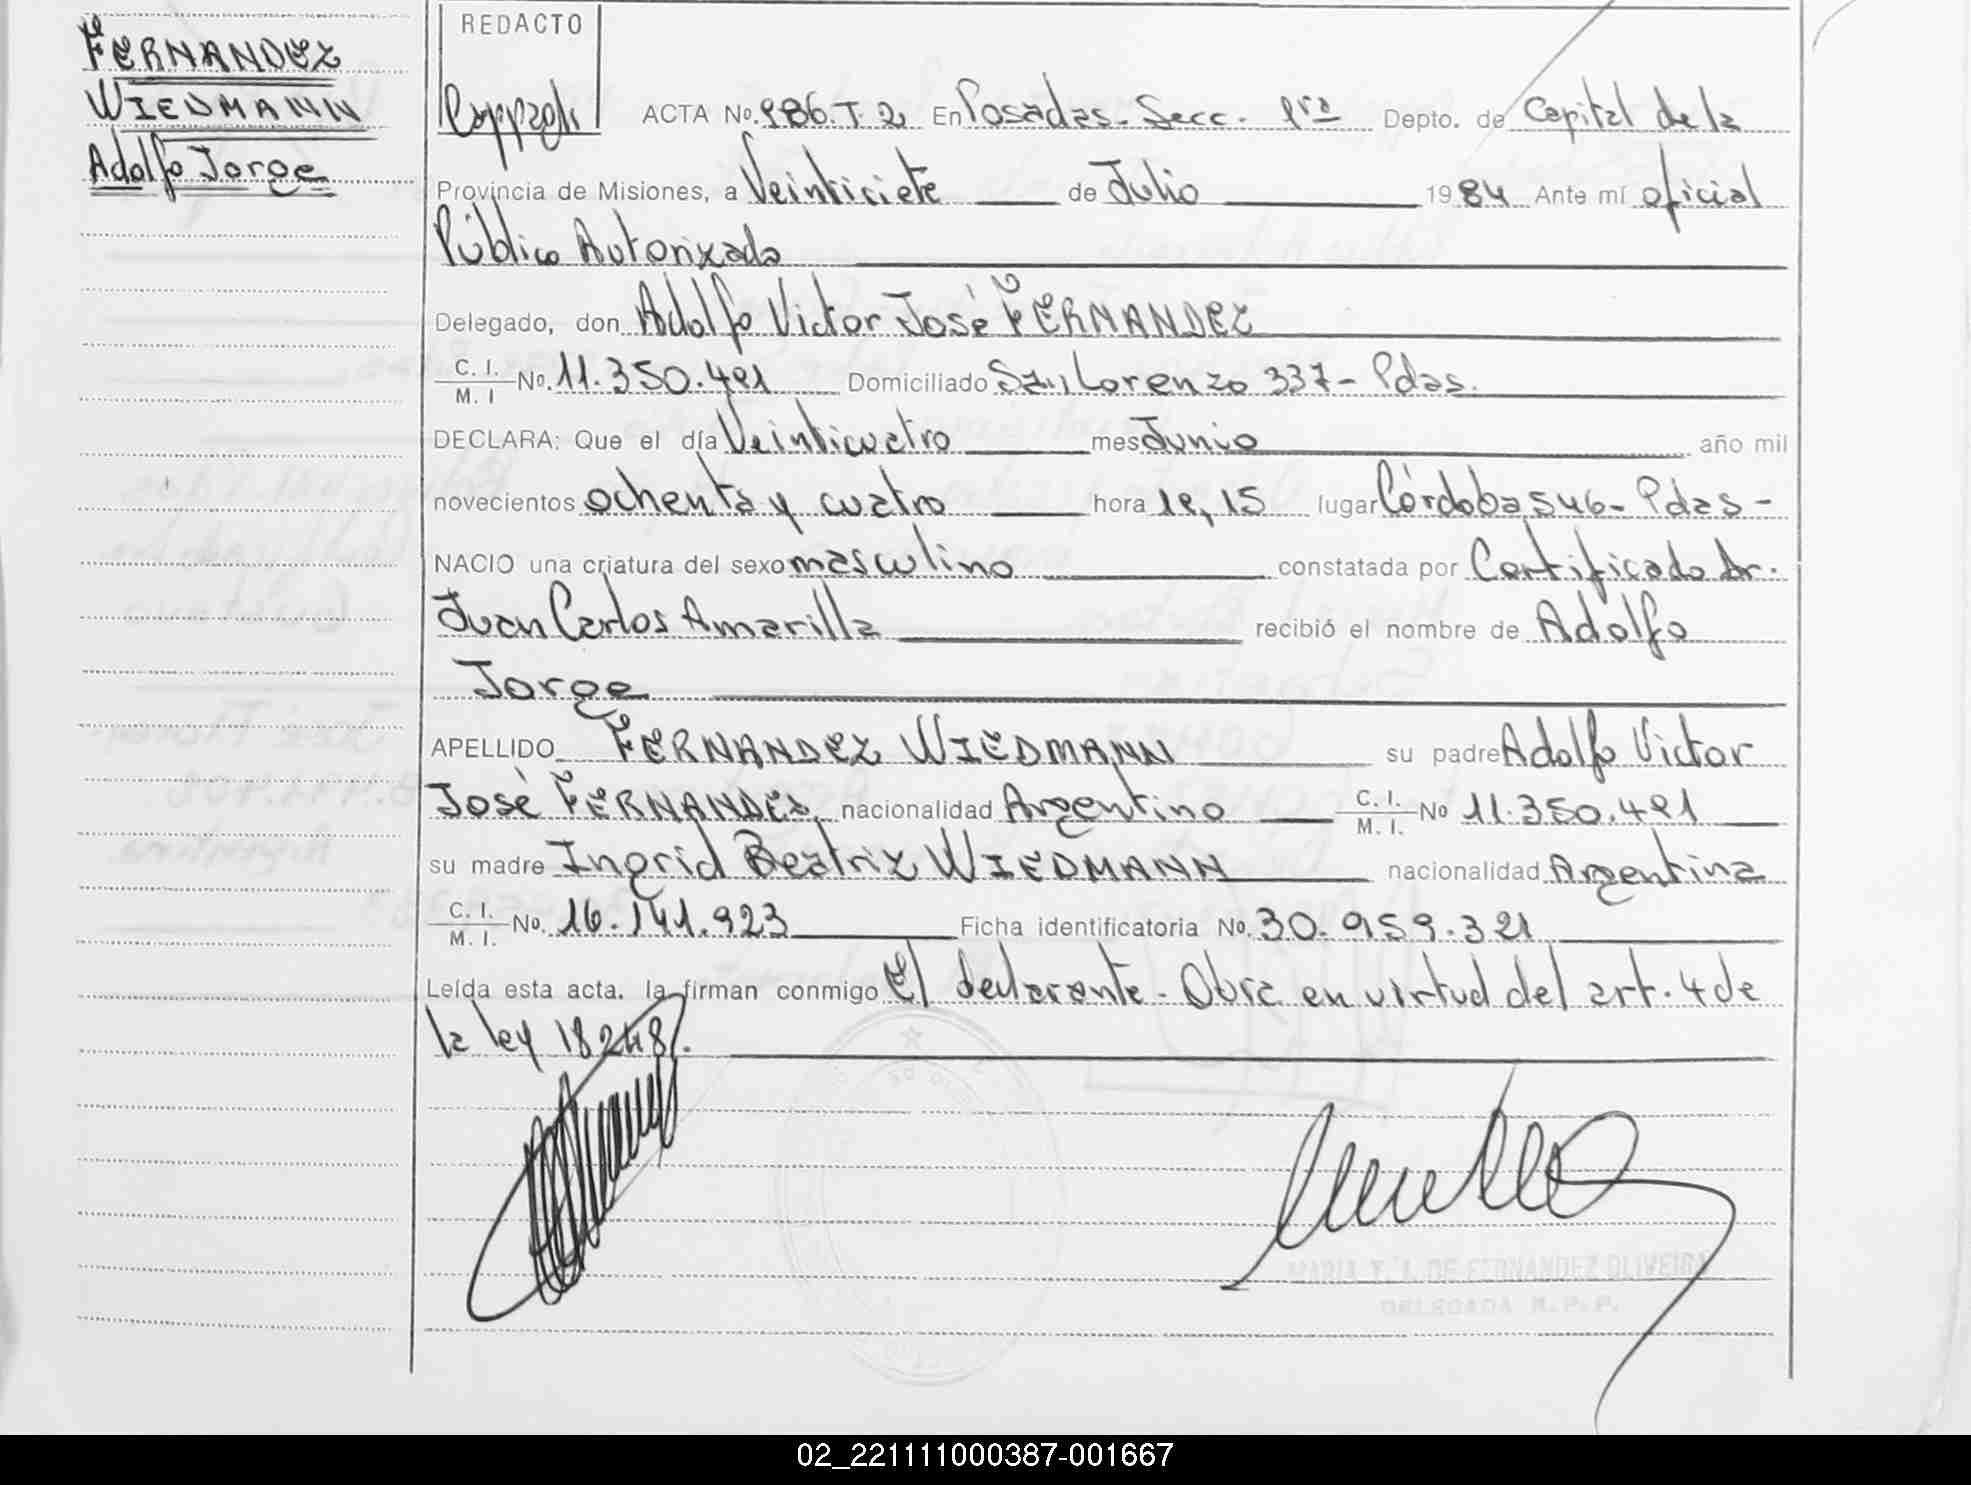 FERNANDEZ
WIEDMANN
Adolfo Jorge
REDACTO
ACTA No. 986. T. 2 En Posadas - Secc. 1ra Depto. de Capital de la
Provincia de Misiones, a Veinticiete de Julio 1984 Ante mí oficial
Público Autorizado
Delegado, don Adolfo Victor José FERNANDEZ
C. I. M. I No. 11.350.491 Domiciliado San Lorenzo 337 - Pdas.
DECLARA: Que el día Veinticuatro mes Junio año mil
novecientos ochenta y cuatro hora 19,15 lugar Córdoba 546 - Pdas -
NACIO una criatura del sexo masculino constatada por Certificado Dr.
Juan Carlos Amarilla recibió el nombre de Adolfo
Jorge
APELLIDO FERNANDEZ WIEDMANN su padre Adolfo Victor
José FERNANDEZ nacionalidad Argentino C. I. M. I. No 11.350.491
su madre Ingrid Beatriz WIEDMANN nacionalidad Argentina
C. I. M. I. No. 16.141.923 Ficha identificatoria No. 30.959.321
Leída esta acta. la firman conmigo El declarante - Obra en virtud del art. 4 de
la ley 18248.
MARIA T. I. DE FERNANDEZ OLIVEIRA
DELEGADA R.P.P.
02_221111000387-001667